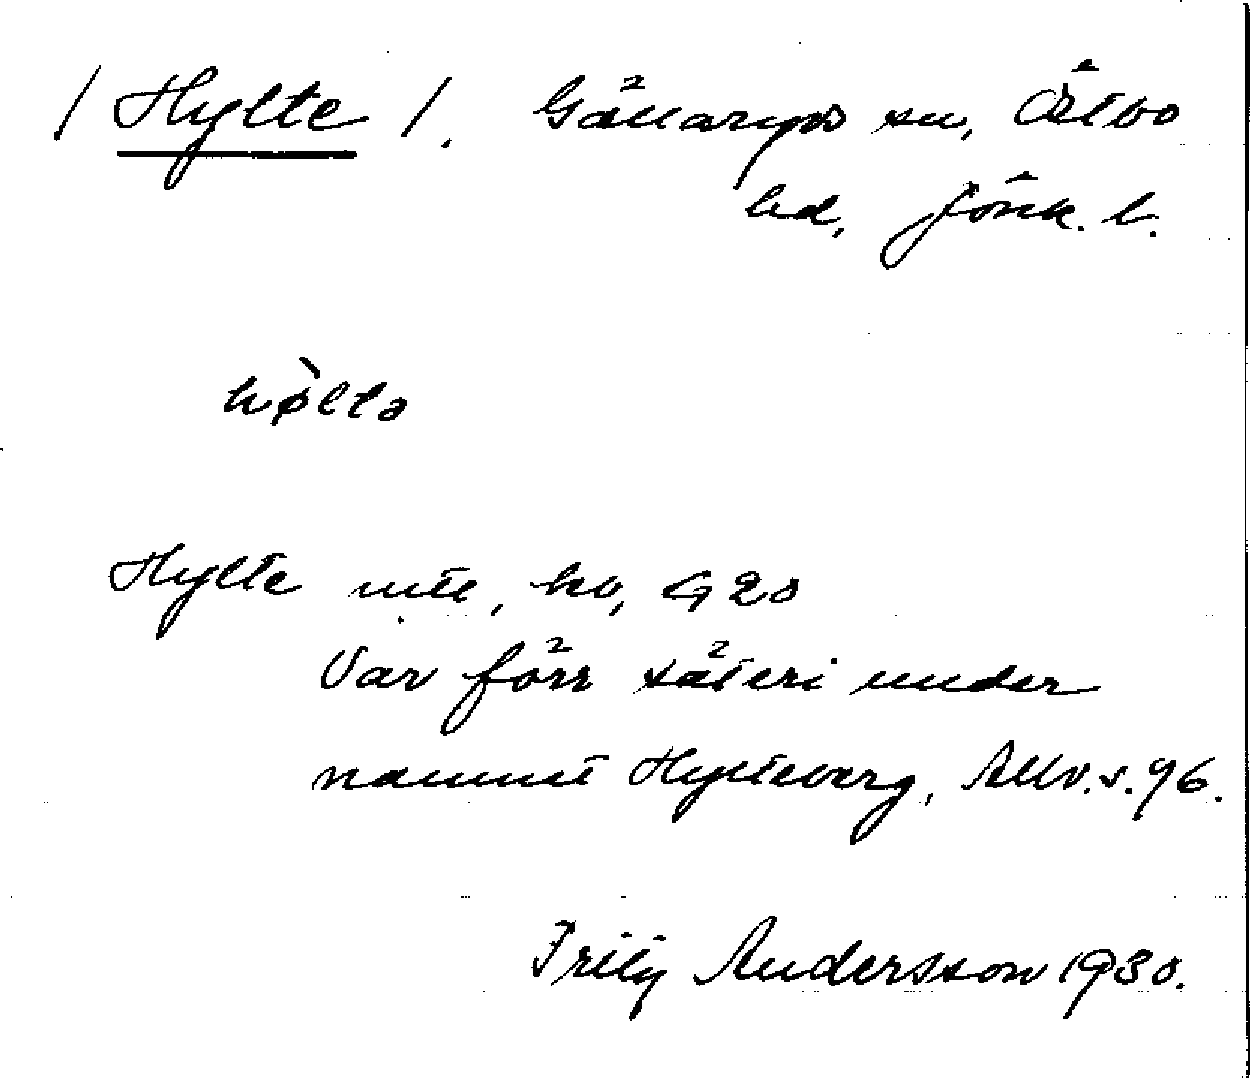 / Hylte /. Gällaryds sn, Östbo
hd, Jönk. l.
hø̀ltə
Hylte mte, hv, G 20
Var förr säteri under
namnet Hylteberg, Allv. s. 96.
Fritz Andersson 1930.